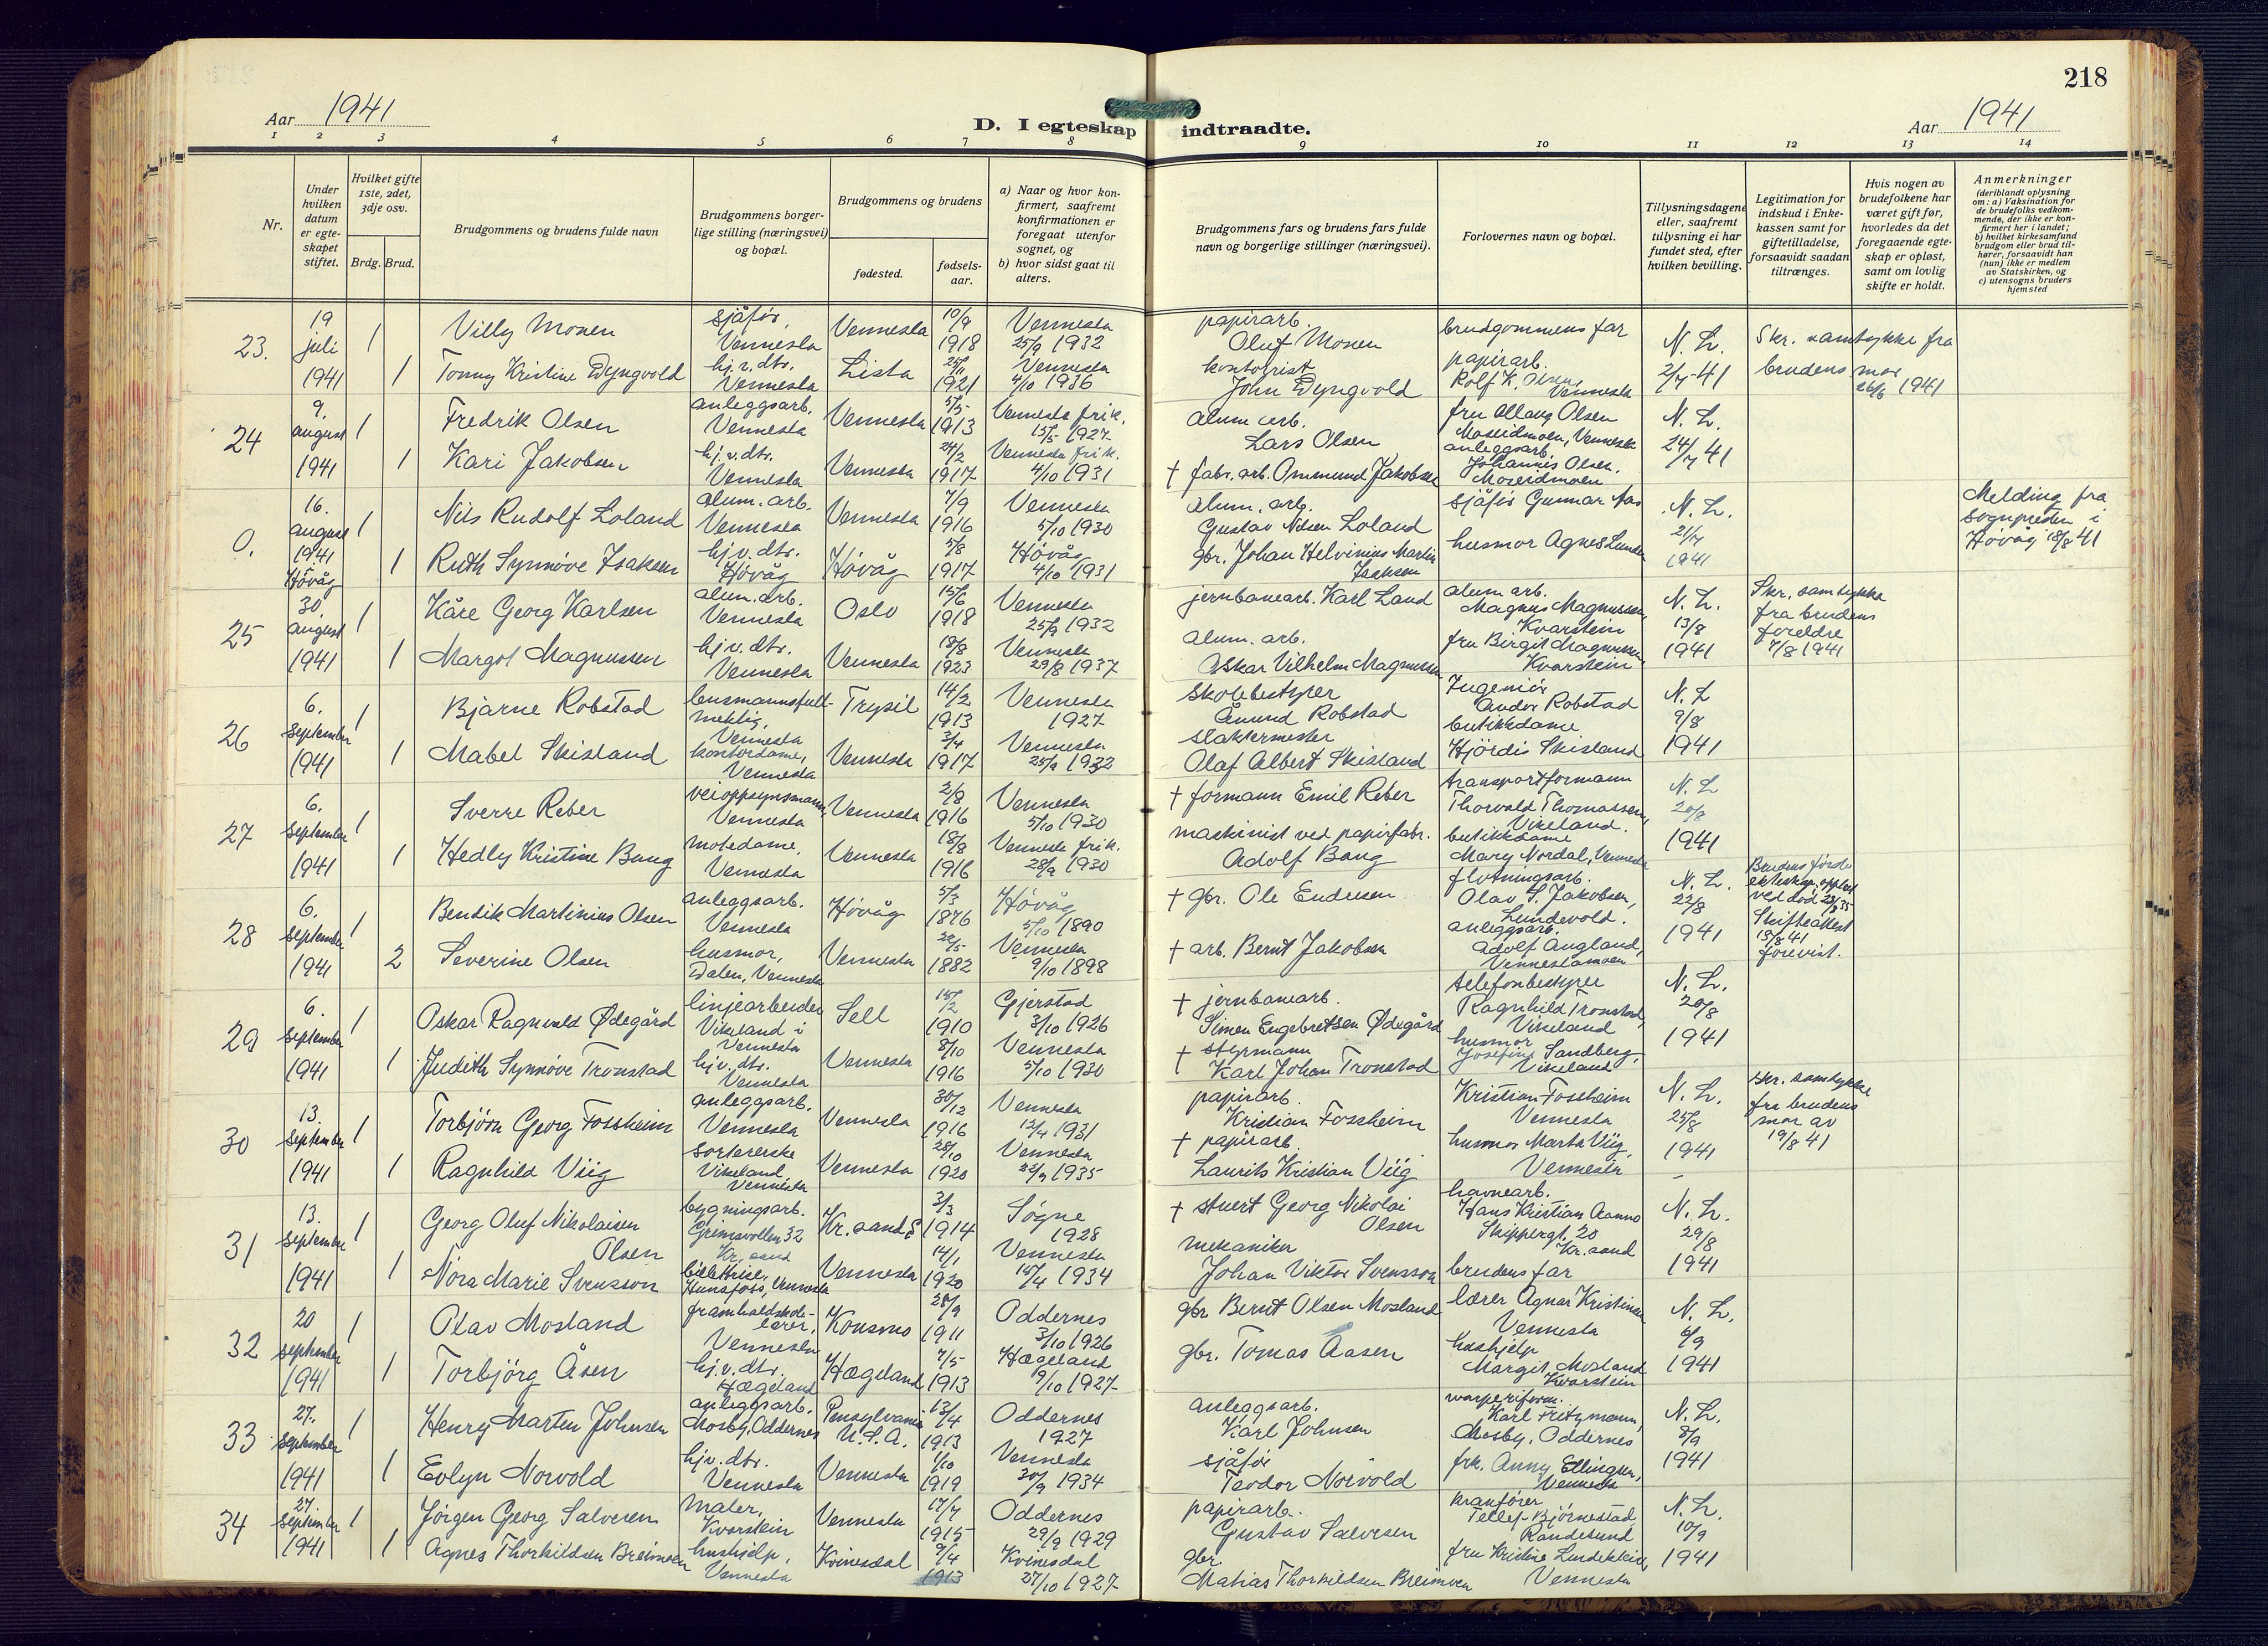 218
Aar 1941
D. I egteskap indtraadte.
Aar 1941
1 2 3 4 5 6 7 8 9 10 11 12 13 14
Nr.
Under hvilken datum er egteskapet stiftet.
Hvilket gifte 1ste, 2det, 3dje osv.
Brdg. Brud.
Brudgommens og brudens fulde navn
Brudgommens borgerlige stilling (næringsvei) og bopæl.
Brudgommens og brudens
fødested.
fødselsaar.
a) Naar og hvor konfirmert, saafremt konfirmationen er foregaat utenfor sognet, og
b) hvor sidst gaat til alters.
Brudgommens fars og brudens fars fulde navn og borgerlige stillinger (næringsvei).
Forlovernes navn og bopæl.
Tillysningsdagene eller, saafremt tillysning ei har fundet sted, efter hvilken bevilling.
Legitimation for indskud i Enkekassen samt for giftetilladelse, forsaavidt saadan tiltrænges.
Hvis nogen av brudefolkene har været gift før, hvorledes da det foregaaende egteskap er opløst, samt om lovlig skifte er holdt.
Anmerkninger
(deriblandt oplysning om: a) Vaksination for de brudefolks vedkommende, der ikke er konfirmert her i landet; b) hvilket kirkesamfund brudgom eller brud tilhører, forsaavidt han (hun) ikke er medlem av Statskirken, og c) utensogns bruders hjemsted
23. 19 juli 1941
1 Villy Monen sjåfør, Vennesla Vennesla 10/9 1918 Vennesla 25/9 1932 papirarb. Oluf Monen brudgommens far N. L. 2/7-41 Skr. samtykke fra brudens mor 26/6 1941
1 Tonny Kristine Dyngvold hj.v.dtr. Vennesla Lista 25/11 1921 Vennesla 4/10 1936 kontorist John Dyngvold papirarb. Rolf K. Olsen, Vennesla
24 9. august 1941
1 Fredrik Olsen anleggsarb. Vennesla Vennesla 5/5 1913 Vennesla frik. 15/5 1927 alum arb. Lars Olsen fru Ollaug Olsen Moseidmoen, Vennesla N. L. 24/7 41
1 Kari Jakobsen hj.v.dtr. Vennesla Vennesla 24/2 1917 Vennesla frik. 4/10 1931 † fabr. arb. Ommund Jakobsen anleggsarb. Johannes Olsen. Moseidmoen
0. 16. august 1941 Høvåg
1 Nils Rudolf Loland alum. arb. Vennesla Vennesla 7/9 1916 Vennesla 5/10 1930 alum. arb. Gustav Nilsen Loland sjåfør Gunnar Aas N. L. 21/7 1941 Melding fra sognpresten i Høvåg 18/8 41
1 Ruth Synnøve Isaksen hj.v.dtr. Høvåg Høvåg 5/8 1917 Høvåg 4/10 1931 gbr. Johan Helvinius Martin Isaksen husmor Agnes Lunden
25 30. august 1941
1 Kåre Georg Karlsen alum. arb. Vennesla Oslo 15/6 1918 Vennesla 25/9 1932 jernbanearb. Karl Land alum arb. Magnus Magnussen, Kvarstein N. L. 13/8 1941 Skr. samtykke fra brudens foreldre 7/8 1941
1 Margot Magnussen hj.v.dtr. Vennesla Vennesla 18/8 1923 Vennesla 29/8 1937 alum. arb. Oskar Vilhelm Magnussen fru Birgit Magnussen, Kvarstein
26 6. september 1941
1 Bjarne Robstad lensmannsfullmektig, Vennesla Trysil 14/2 1913 Vennesla 1927 Skolebestyrer Åmund Robstad Ingeniør Andor Robstad N. L 9/8 1941
1 Mabel Skisland kontordame, Vennesla Vennesla 3/4 1917 Vennesla 25/9 1932 slaktermester Olaf Albert Skisland butikkdame Hjördis Skisland
27 6. september 1941
1 Sverre Reber veioppsynsmann, Vennesla Vennesla 2/8 1916 Vennesla 5/10 1930 † formann Emil Reber transportformann Thorvald Thomassen, Vikeland. N. L 20/8 1941
1 Hedly Kristine Bang motedame, Vennesla Vennesla 18/8 1916 Vennesla frik. 28/9 1930 maskinist ved papirfabr. Adolf Bang butikkdame Mary Nordal, Vennesla
28 6. september 1941
1 Bendik Martinius Olsen anleggsarb. Vennesla Høvåg 5/3 1876 Høvåg 5/10 1890 † gbr. Ole Endresen fløtningsarb. Olav S. Jakobsen, Lundevold. N. L. 22/8 1941 Brudens første ekteskap oppløst ved død 28/8 35 Skifteattest 15/8 41 forevist.
2 Severine Olsen husmor, Dalen, Vennesla Vennesla 22/5 1882 Vennesla 9/10 1898 † arb. Bernt Jakobsen anleggsarb. Adolf Augland, Venneslamoen
29 6. september 1941
1 Oskar Ragnvald Ødegård linjearbeider Vikeland i Vennesla Sell 15/2 1910 Gjerstad 3/10 1926 † jernbanearb. Simen Engebretsen Ødegård telefonbestyrer Ragnhild Tronstad, Vikeland N. L. 20/8 1941
1 Judith Synnöve Tronstad hj.v.dtr. Vennesla Vennesla 8/10 1916 Vennesla 5/10 1930 † styrmann Karl Johan Tronstad husmor Josefine Sandberg, Vikeland
30 13. september 1941
1 Torbjörn Georg Fossheim anleggsarb. Vennesla Vennesla 30/12 1916 Vennesla 12/4 1931 papirarb. Kristian Fossheim Kristian Fossheim Vennesla N. L. 25/8 1941 Skr. samtykke fra brudens mor av 19/8 41
1 Ragnhild Viig sortererske Vikeland, Vennesla Vennesla 28/10 1920 Vennesla 22/9 1935 † papirarb. Laurits Kristian Viig husmor Marta Viig, Vennesla
31 13. september 1941
1 Georg Oluf Nikolaisen Olsen bygningsarb. Grimsvollen 32 Kr. sand Kr. sand S 3/3 1914 Søgne 1928 † stuert Georg Nikolai Olsen havnearb. Hans Kristian Aanno Skippergt. 20 Kr. sand N. L. 29/8 1941
1 Nora Marie Svensson billettrise, Hunsfoss, Vennesla Vennesla 14/1 1920 Vennesla 15/4 1934 mekaniker Johan Viktor Svensson brudens far
32 20 september 1941
1 Olav Mosland framhaldsskolelærer, Vennesla Konsmo 28/9 1911 Oddernes 3/10 1926 gbr. Bernt Olsen Mosland lærer Agnar Kristinsen Vennesla N. L. 6/9 1941
1 Torbjörg Åsen hj.v.dtr. Hægeland Hægeland 7/5 1913 Hægeland 9/10 1927 gbr. Tomas Aasen hushjelp Margit Mosland Kvarstein
33 27. september 1941
1 Henry Marten Johnsen anleggsarb. Mosby, Oddernes Pensylvania U.S.A. 13/4 1913 Oddernes 1927 anleggsarb. Karl Johnsen Karl Fritzmann, Mosby, Oddernes N. L. 8/9 1941
1 Evlyn Norvold hjv. dtr. Vennesla Vennesla 1/10 1919 Vennesla 30/9 1934 sjåfør Teodor Norvold frk. Anny Ellingsen, Vennesla
34 27. september 1941
1 Jörgen Georg Salvesen Maler, Kvarstein Vennesla 17/7 1915 Oddernes 29/9 1929 papirarb. Gustav Salvesen kranfører Tellef Bjørnestad, Randesund N. L. 10/9 1941
1 Agnes Thorkildsen Breimoen hushjelp, Vennesla Kvinesdal 9/4 1913 Kvinesdal 27/10 1927 gbr. Matias Thorkildsen Breimoen fru Kristine Vennesla